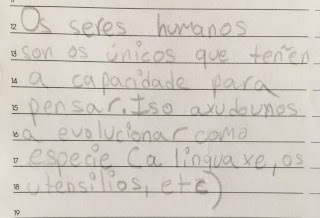 12 Os seres humanos
13 son os únicos que teñen
14 a capacidade para
15 pensar. Iso axudounos
16 a evolucionar como
17 especie (a linguaxe, os
18 utensilios, etc)
19